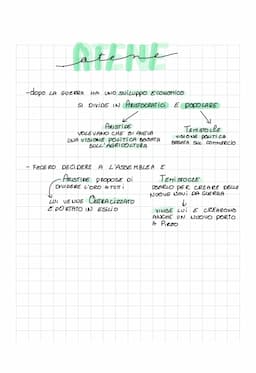 ATENE
atene
-DOPO LA GUERRA HA UNO SVILUPPO ECONOMICO
SI DIVIDE IN ARISTOCRATICI E POPOLARE
ARISTIDE TEMISTOCLE
VOLEVANO CHE SI AVEVA VISIONE POLITICA
UNA VISIONE POLITICA BASATA BASATA SUL COMMERCIO
SULL'AGRICOLTURA
- FECERO DECIDERE A L'ASSEMBLEA E
ARISTIDE PROPOSE DI TEMISTOCLE
DIVIDERE L'ORO A TUTTI PER CREARE DELLE
NUOVE NAVI DA GUERRA
LUI VENNE
E PORTATO IN ESILIO VINSE LUI E CREARONO
ANCHE UN NUOVO PORTO
A PIREO